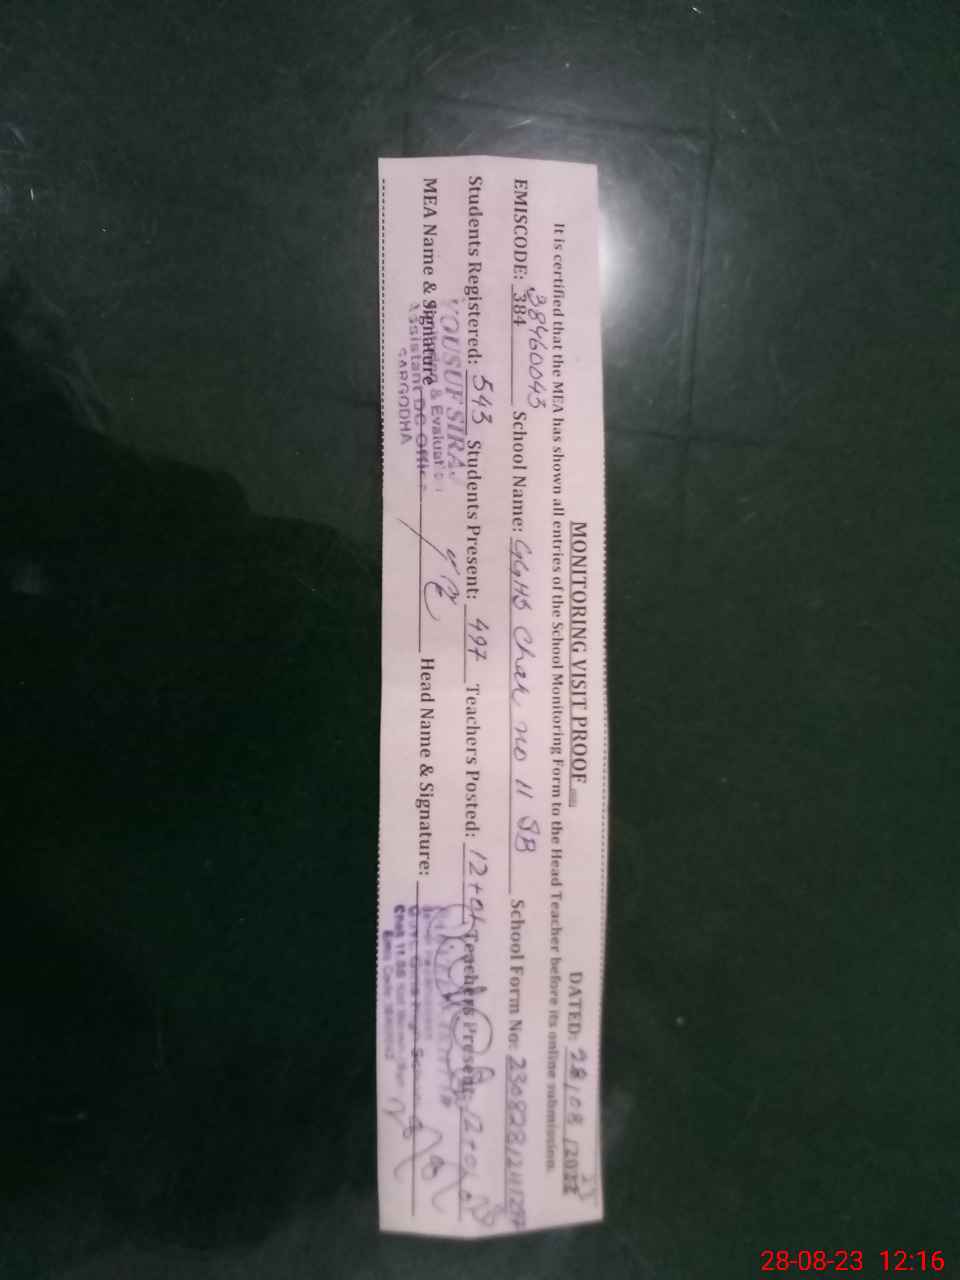 MONITORING VISIT PROOF
DATED: 28/08/2023
It is certified that the MEA has shown all entries of the School Monitoring Form to the Head Teacher before its online submission.
38460043
EMISCODE: 384 School Name: GGHS Chak no 11 SB School Form No:
Students Registered: 543 Students Present: 497 Teachers Posted: 12+01 Teachers Present: 12+0
YOUSUF SIRAJ
MEA Name & Signature Head Name & Signature:
& Evaluation
Assistant DC Office
SARGODHA
28-08-23 12:16